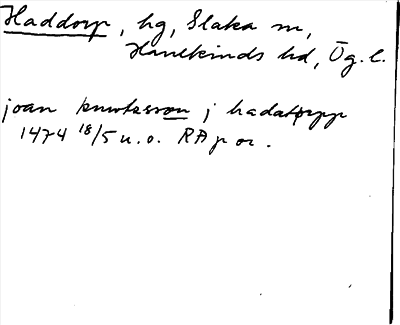 Haddorp, hg, Slaka sn,
Hanekinds hd, Ög. l.
joan knwtsson j hadatorpp
1474 18/5 u. o. RA p or.